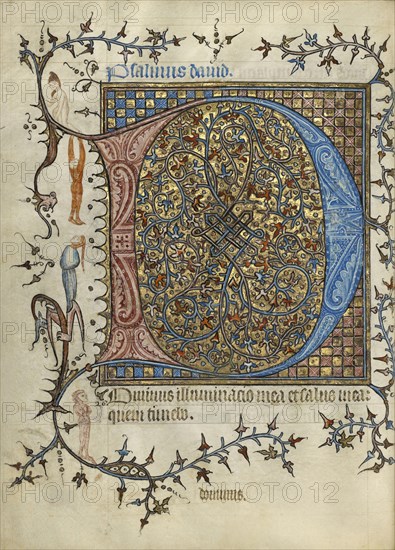 Psalmus david.
DOminus illuminacio mea et salus mea:
quem timebo.
dominus.